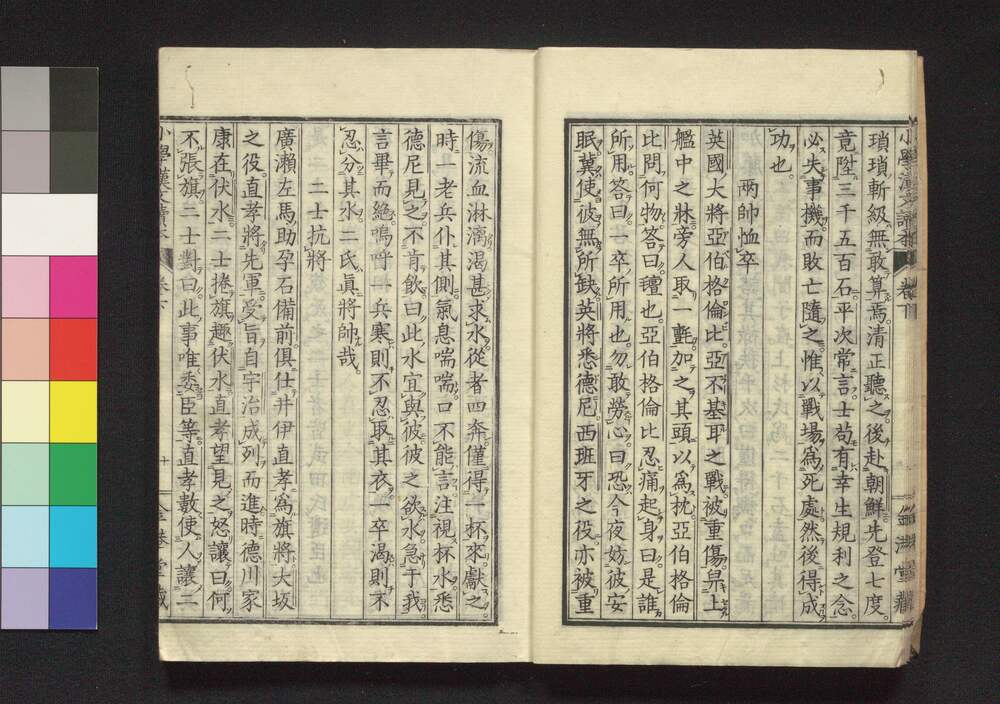 瑣瑣斬級無敢算焉清正聽之後赴朝鮮先登七度
竟陞三千五百石平次常言士苟有幸生規利之念
必失事機而敗亡隨之惟以戰場為死處然後得成
功也
兩帥恤卒
英國大將亞伯格倫比亞不基耳之戰被重傷舁上
艦中之牀旁人取一氈加之其頭以為枕亞伯格倫
比問何物答曰氈也亞伯格倫比忍痛起身曰是誰
所用答曰一卒所用也勿敢勞心曰恐今夜妨彼安
眠冀使彼無所缺英將悉德尼西班牙之役亦被重
傷流血淋漓渴甚求水從者四奔僅得一杯來獻之
時一老兵仆其側氣息喘喘口不能言注視杯水悉
德尼見之不肯飲曰此水宜與彼彼之欲水急于我
言畢而絶嗚呼一兵寒則不忍取其衣一卒渴則不
忍分其水二氏真將帥哉
二士抗將
廣瀨左馬助孕石備前俱仕井伊直孝為旗將大坂
之役直孝將先軍受旨自宇治成列而進時德川家
康在伏水二士捲旗趣伏水直孝望見之怒讓曰何
不張旗二士對曰此事唯委臣等直孝數使人讓二